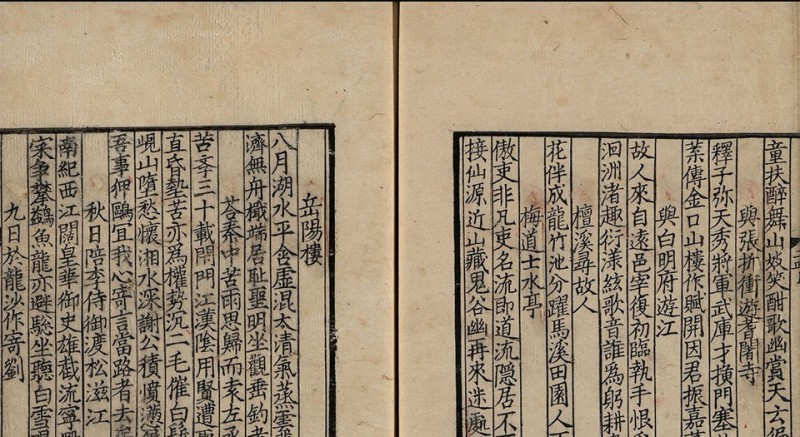 童扶醉舞山妓笑酣歌幽賞
與張折衝遊耆闍寺
釋子弥天秀將軍武庫才橫門塞
業傳金口山樓作賦開因君振嘉
與白明府遊江
故人來自遠邑宰復初臨執手恨
洄洲渚趣行漾絃歌音誰為躬耕
檀溪尋故人
花伴成龍竹池分躍馬溪田園人
梅道士水亭
傲吏非凡吏名流即道流隠居不
接仙源近山藏鬼谷幽再來迷處
岳陽樓
八月湖水平含虚混太清氣蒸雲
濟無舟檝端居耻聖明坐觀垂釣者
荅秦中苦雨思歸而袁左丞
苦季三十載閉門江漢陰用賢遭
直昏墊苦亦為權勢沉二毛催白髮
峴山墮愁懷湘水深謝公積憤懣
吾事狎鷗宜我心寄言當路者去
秋日陪李侍御渡松滋江
南紀西江闊皇華御史雄截流寧
寀争攀鷁魚龍亦避驄坐聽白雪
九日於龍沙作寄劉